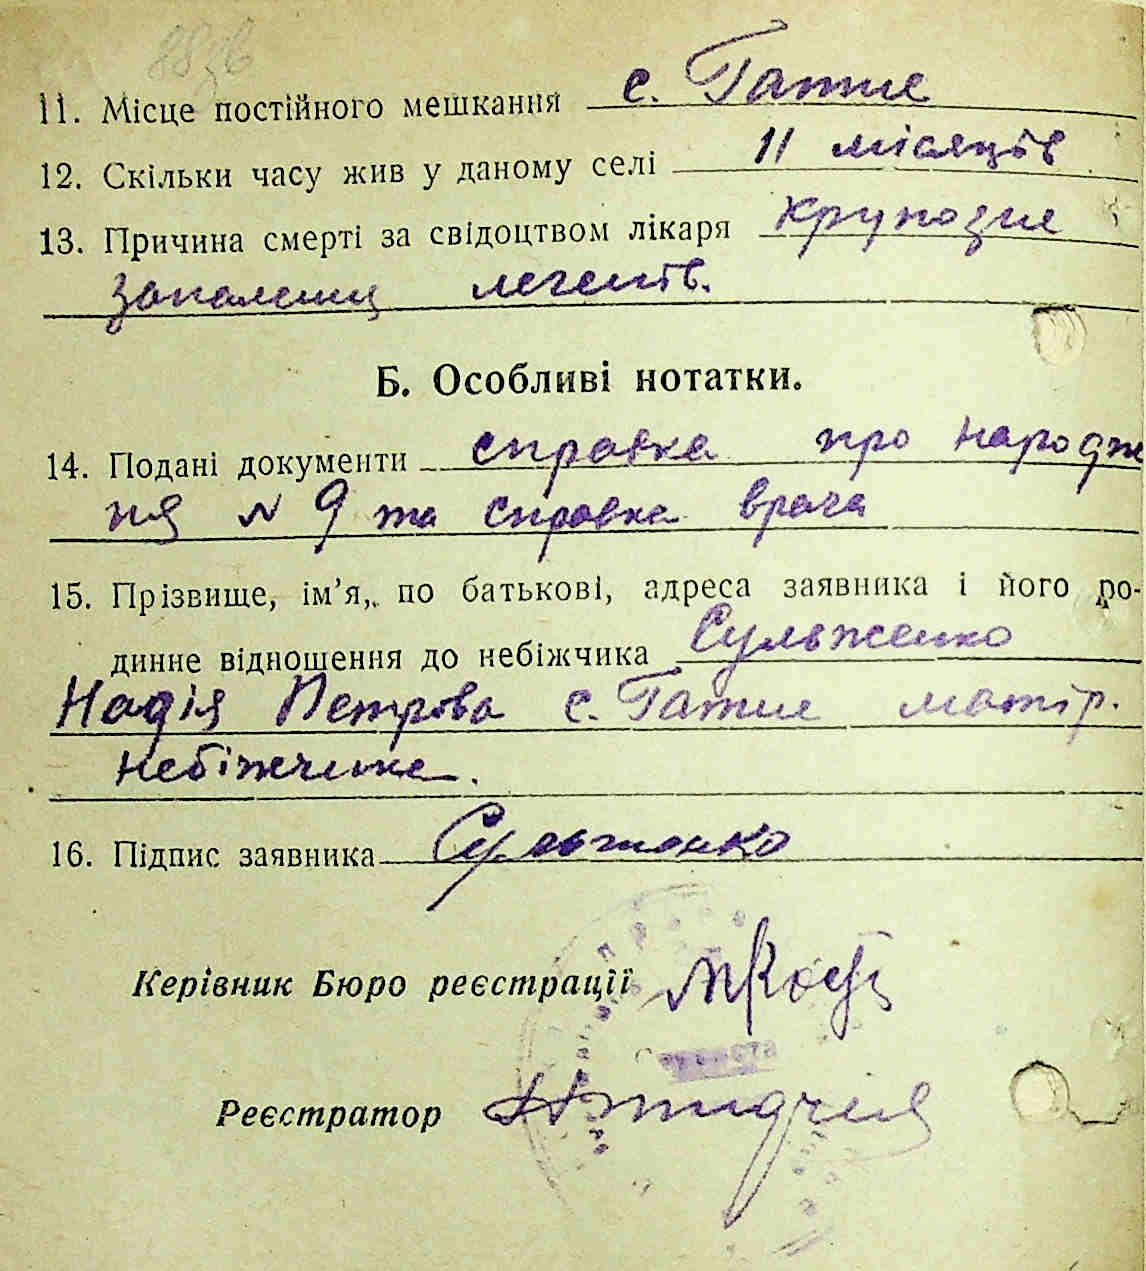 88зв
11. Місце постійного мешкання с. Гатне
12. Скільки часу жив у даному селі 11 місяців
13. Причина смерті за свідоцтвом лікаря Крупозне
запаленни легенів.
Б. Особливі нотатки.
14. Подані документи справка про народж
ня № 9 та справка врача
15. Прізвище, ім’я, по батькові, адреса заявника і його ро-
динне відношення до небіжчика Сульженко
Надія Петрова с. Гатне матір.
небіжчика.
16. Підпис заявника Сульженко
Керівник Бюро реєстрації
Реєстратор